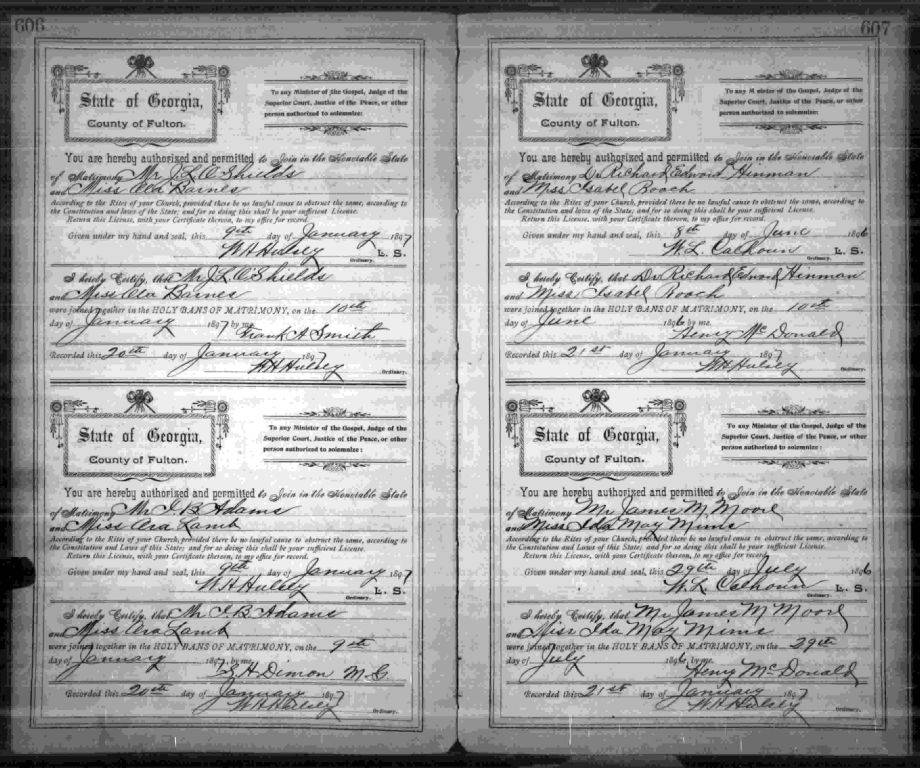 606
State of Georgia,
County of Fulton.
To any Minister of the Gospel, Judge of the
Superior Court, Justice of the Peace, or other
person authorized to solemnize:
You are hereby authorized and permitted to Join in the Honorable State
of Matrimony Mr J. L. O'Shields
and Miss Ola Barnes
According to the Rites of your Church, provided there be no lawful cause to obstruct the same, according to
the Constitution and laws of this State; and for so doing this shall be your sufficient License.
Return this License, with your Certificate thereon, to my office for record.
Given under my hand and seal, this 9th day of January 1897
W H Hulsey L. S.
Ordinary.
I hereby Certify, that Mr J. L. O'Shields
and Miss Ola Barnes
were joined together in the HOLY BANS OF MATRIMONY, on the 10th
day of January 1897 by me.
Frank A Smith
Recorded this 20th day of January 1897
W H Hulsey
Ordinary.
State of Georgia,
County of Fulton.
To any Minister of the Gospel, Judge of the
Superior Court, Justice of the Peace, or other
person authorized to solemnize:
You are hereby authorized and permitted to Join in the Honorable State
of Matrimony Mr I. B Adams
and Miss Ora Lamb
According to the Rites of your Church, provided there be no lawful cause to obstruct the same, according to
the Constitution and Laws of this State; and for so doing this shall be your sufficient License.
Return this License, with your Certificate thereon, to my office for record.
Given under my hand and seal, this 9th day of January 1897
W H Hulsey L. S.
Ordinary.
I hereby Certify, that Mr I. B Adams
and Miss Ora Lamb
were joined together in the HOLY BANS OF MATRIMONY, on the 9th
day of January 1897, by me.
S. H. Dimon M. G.
Recorded this 20th day of January 1897
W H Hulsey
Ordinary.
607
State of Georgia,
County of Fulton.
To any Minister of the Gospel, Judge of the
Superior Court, Justice of the Peace, or other
person authorized to solemnize:
You are hereby authorized and permitted to Join in the Honorable State
of Matrimony Dr Richard Edward Hinman
and Miss Isabel Roach
According to the Rites of your Church, provided there be no lawful cause to obstruct the same, according
to the Constitution and laws of the State; and for so doing this shall be your sufficient License.
Return this License, with your Certificate thereon, to my office for record.
Given under my hand and seal, this 8th day of June 1896
W. L. Calhoun L. S.
Ordinary.
I hereby Certify, that Dr Richard Edward Hinman
and Miss Isabel Roach
were joined together in the HOLY BANS OF MATRIMONY, on the 10th
day of June 1896 by me
Henry McDonald
Recorded this 21st day of January 1897
W H Hulsey
Ordinary.
State of Georgia,
County of Fulton.
To any Minister of the Gospel, Judge of the
Superior Court, Justice of the Peace, or other
person authorized to solemnize:
You are hereby authorized and permitted to Join in the Honorable State
of Matrimony Mr James M. Moore
and Miss Ida May Mims
According to the Rites of your Church, provided there be no lawful cause to obstruct the same, according to
the Constitution and Laws of this State; and for so doing this shall be your sufficient License.
Return this License, with your Certificate thereon, to my office for record.
Given under my hand and seal, this 29th day of July 1896
W. L. Calhoun L. S.
Ordinary.
I hereby Certify, that Mr James M Moore
and Miss Ida May Mims
were joined together in the HOLY BANS OF MATRIMONY, on the 29th
day of July 1896, by me.
Henry McDonald
Recorded this 21st day of January 1897
W H Hulsey
Ordinary.